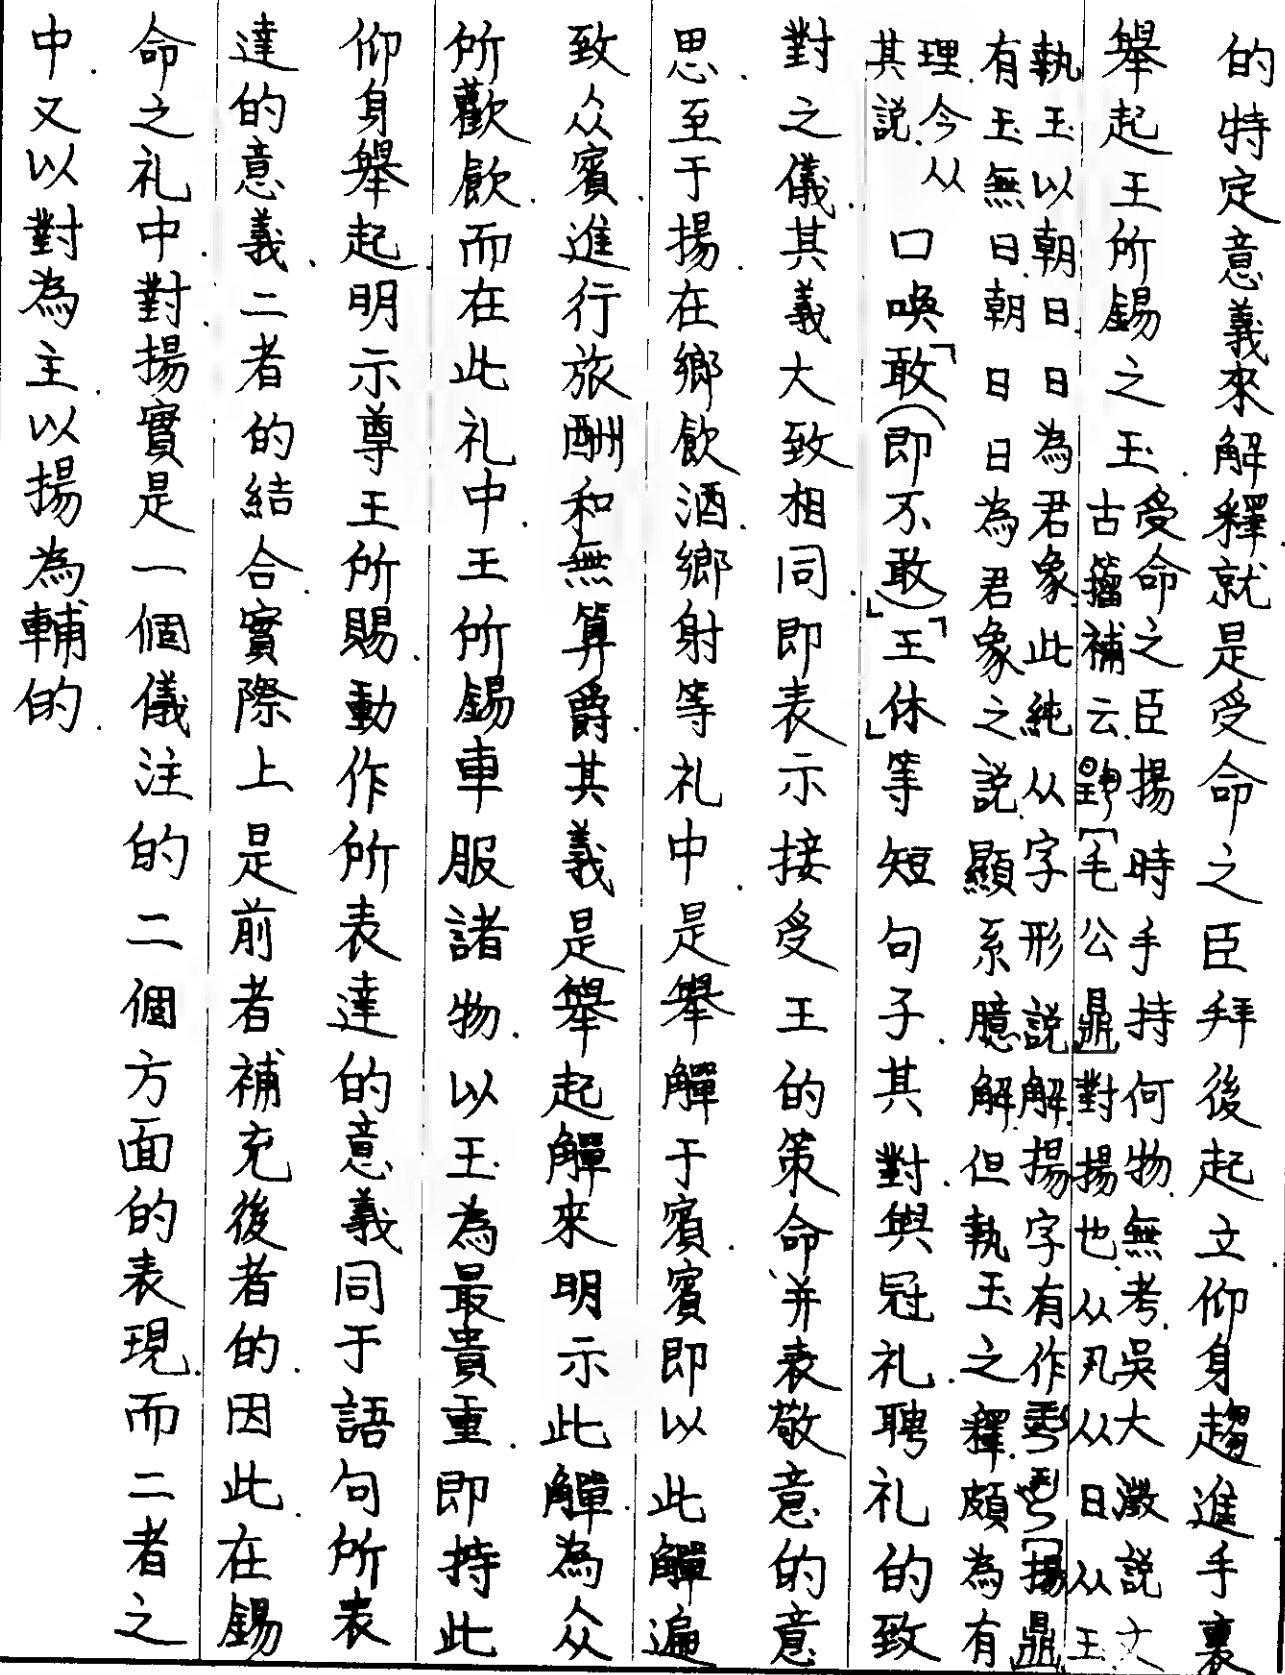 的特定意義來解釋.就是受命之臣拜後起立仰身趨進手裏
舉起王所錫之玉.
受命之臣揚時手持何物.無考.吳大澂説文
古籀補云[毛公鼎]對揚也.从丮从日从玉
執玉以朝日.日為君象.此純从字形説解.揚字有作[揚鼎]
有玉無日.朝日日為君象之説.顯系臆解.但執玉之釋.頗為有
理.今从
其説.
口喚「敢(即不敢)」「王休」等短句子.其對.與冠礼.聘礼的致
對之儀.其義大致相同.即表示接受王的策命、并表敬意的意
思.至于揚.在鄉飲酒.鄉射等礼中.是舉觶于賓.賓即以此觶遍
致众賓.進行旅酬和無算爵.其義是舉起觶來明示此觶.為众
所歡飲.而在此礼中.王所錫車服諸物.以王為最貴重.即持此
仰身舉起.明示尊王所賜.動作所表達的意義同于語句所表
達的意義、二者的結合.實際上是前者補充後者的.因此.在錫
命之礼中.對.揚實是一個儀注的二個方面的表現.而二者之
中.又以對為主.以揚為輔的.